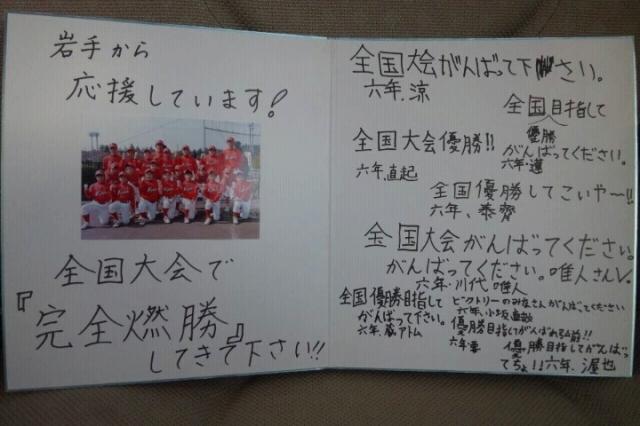 岩手から
応援しています!
全国大会で
『完全燃勝』
してきて下さい!!
全国大会がんばって下さい。
六年.涼
全国目指して
優勝
がんばってください。
六年.蓮
全国大会優勝!!
六年.直起
全国優勝してこいや〜!!
六年、泰齊
全国大会がんばってください。
がんばってください。唯人さんV.
六年.川代 唯人
全国優勝目指して
がんばって下さい。
六年、蔵アトム
ビクトリーのみなさんがんばってください
六年.小坂
優勝目指してがんばれ弘前!!
六年
優勝目指してがんばっ
てちょ!!六年、渥也